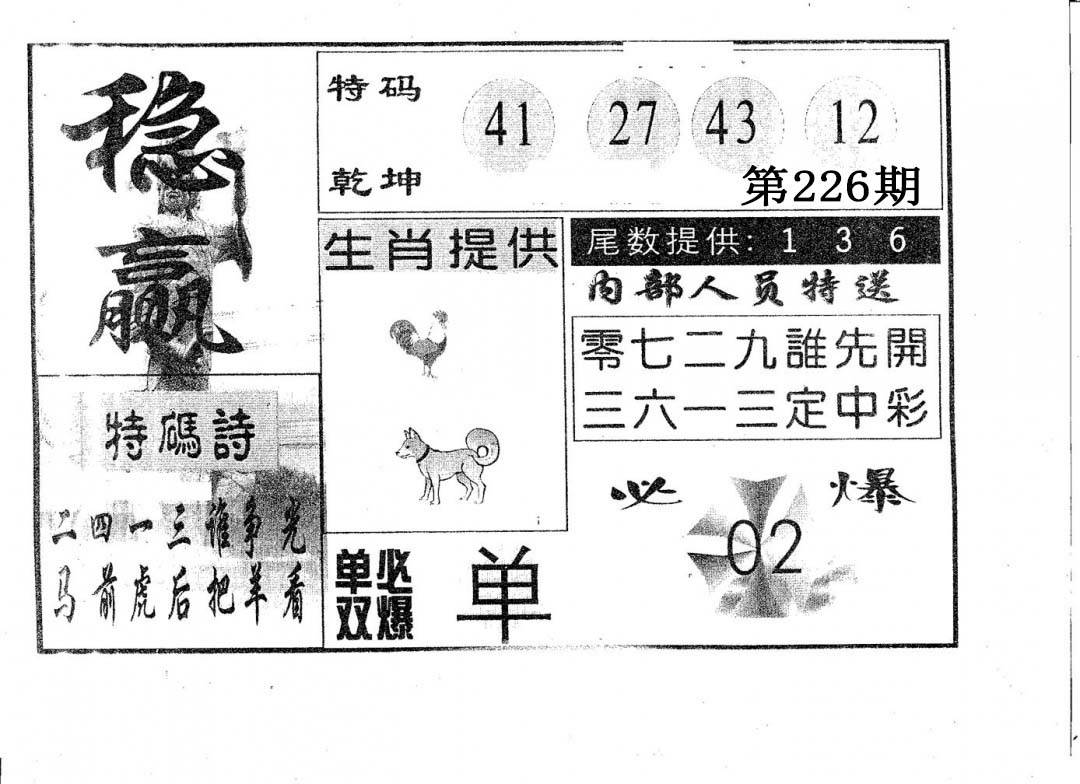 稳赢
特码 41 27 43 12
乾坤
第226期
生肖提供
尾数提供: 1 3 6
内部人员特送
零七二九誰先開
三六一三定中彩
特碼詩
二四一三谁争光
马前虎后把羊看
必爆
02
单双必爆
单